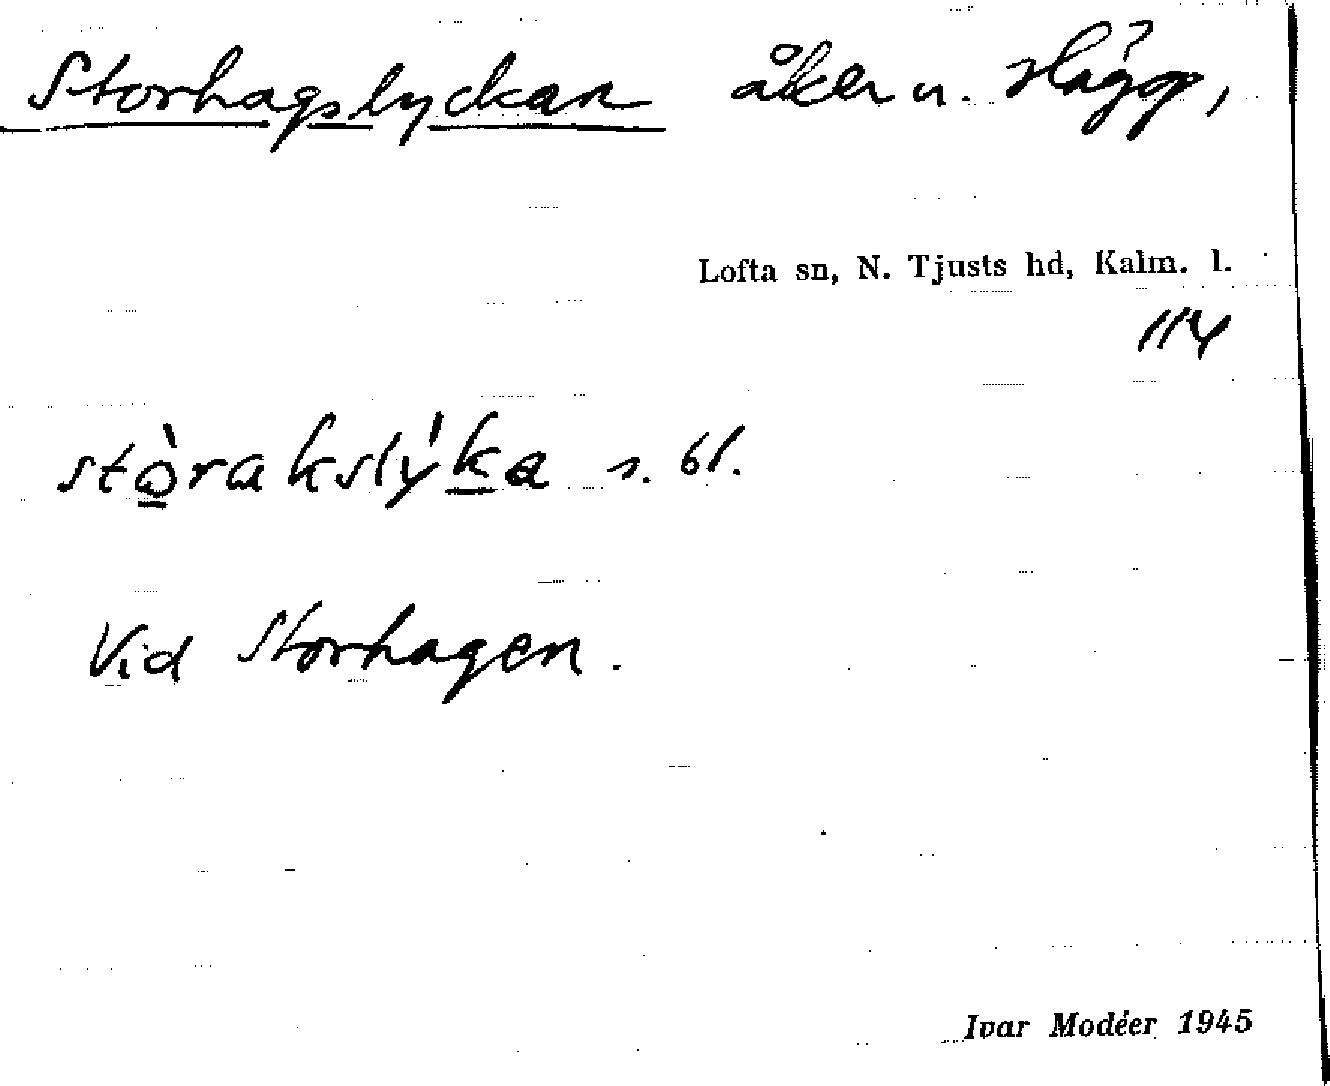 Storhagslyckan åker u. Hägg,
Lofta sn, N. Tjusts hd, Kalm. l.
114
stò̲rakslýk̲a s. bl.
Vid Storhagen.
Ivar Modéer 1945